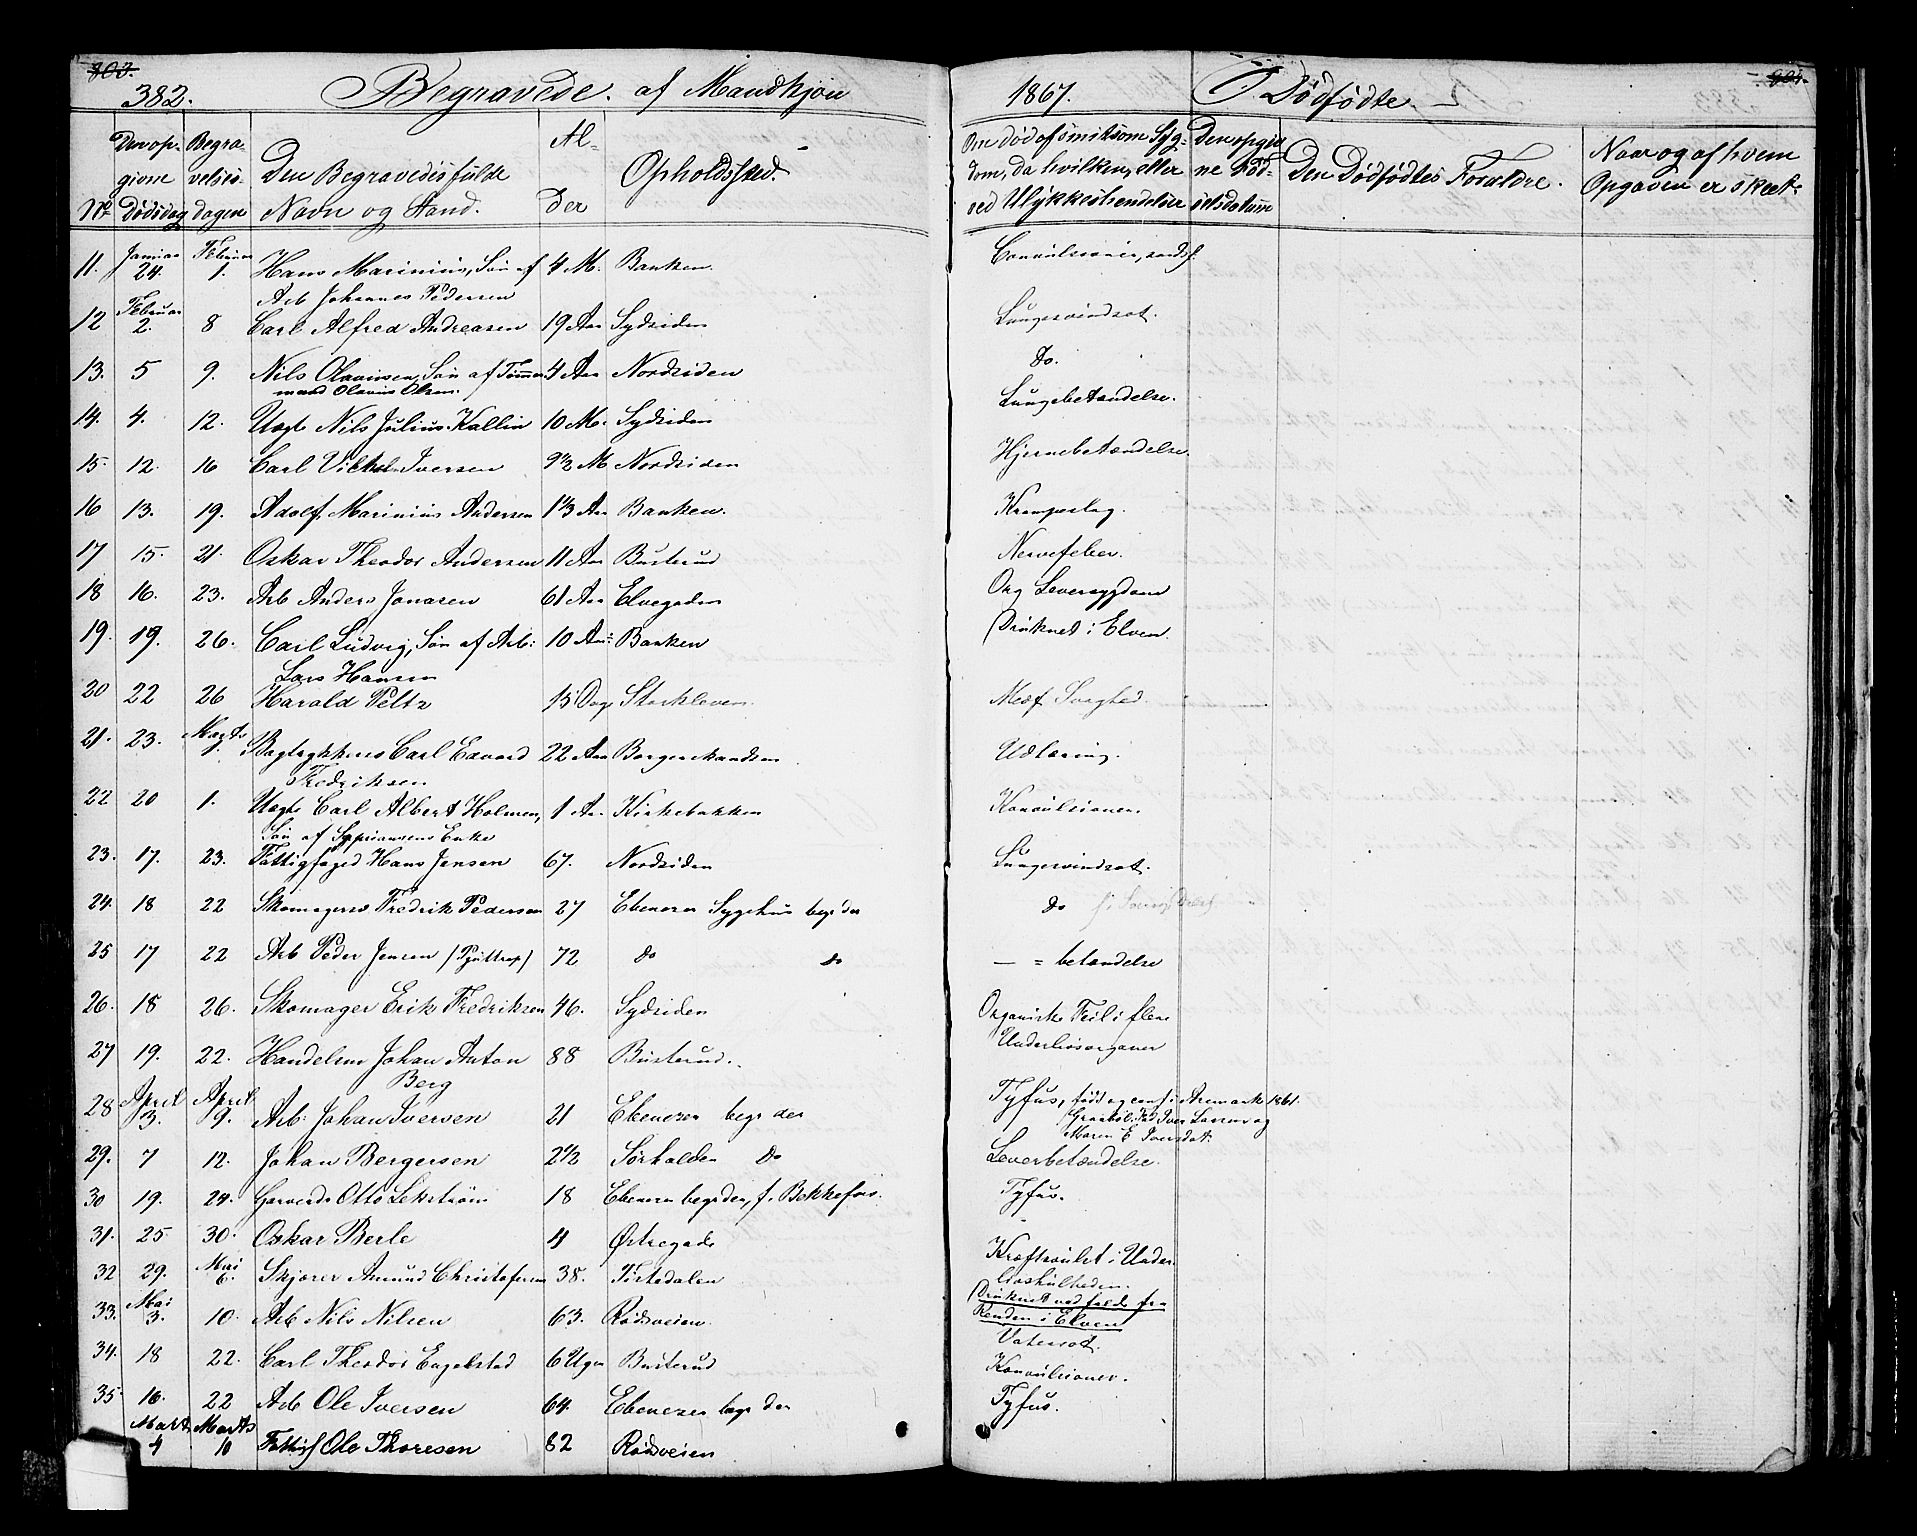 303.
382. Begravede af Mandkjøn
No Den opgivne Dødsdag Begravelsesdagen Den Begravedes fulde Navn og Stand. Alder Opholdssted
11. Januar 24. Februar 1. Hans Marinius, Søn af 4 M. Banken.
Arb Johannes Pedersen
12 Februar 2. 8 Carl Alfred Andreasen 19 Aar Sydsiden
13. 5 9. Nils Olavisen, Søn af Tømmer 4 Aar Nordsiden
mand Olavius Olsen.
14. 4. 12. Uægte Nils Julius Kallin 10 M. Sydsiden
15. 12. 16 Carl Vilhelm Iversen 9½ M Nordsiden
16 13. 19. Adolf Marinius Andersen 1⅓ Aar Banken.
17 15. 21. Oskar Theodor Andersen 11 Aar Busterud
18 16. 23. Arb Anders Jonasen 61 Aar Elvegaden
19. 19. 26. Carl Ludvig, Søn af Arb: 10 Aar: Banken
Lars Hansen
20 22 26 Harald Peltz 15 Dage Storkleven
21. 23. Marts 1. Carl Edvard 22 Aar Borgermandsen
Fredriksen
22 20 1. Uægte Carl Albert Holmen, 1 Aar Kirkebakken
Søn af Sypriansens Enke
23. 17. 23. Fattigfoged Hans Jensen 67. Nordsiden
24. 18 22 Skomagersv Fredrik Pedersen 27 Ebenezer Sygehus begr der
25 17 22 Arb Peder Jensen 72 do do
26. 18 26. Skomager Erik Fredriksen 46. Sydsiden
27 19. 22. Handelsm Johan Anton 88 Busterud.
Berg
28 April 3. April 9. Arb: Johan Iversen 21 Ebenezer begr der
29. 7 12. Johan Bergersen 2½ Sørhalden do
30 19. 24. Garversv Otto Lekstrøm 18 Ebenezer begr der, f. Bekkefos.
31. 25 30. Oskar Berle 4 Østregade
32 29. Mai 6. Skjærer Amund Christofersen 38. Tistedalen
33. Mai 3. 10. Arb Nils Nilsen 63. Rødsveien.
34. 18 22. Carl Theodor Engelstad 6 Uger Busterud
35 16. 22 Arb Ole Iversen 64. Ebenezer begr der
Mart 4 Marts 10 Fattigl Ole Thoresen 82 Rødsveien
1867. Dødfødte
Om død af smitsom Sygdom, da hvilken, eller ved Ulykkeshændelser Den opgivne Fødselsdatum Den Dødfødtes Forældre. Naar og af hvem Opgaven er skeet.
Convulsioner,
Lungesvindsot.
do.
Lungebetændelse.
Hjernebetændelse.
Krampeslag.
Nervefeber.
Org Leversygdom
Druknet i Elven.
Medf Svaghed.
Udtæring.
Konvulsioner.
Lungesvindsot.
do
— = betændelse
Organiske Feil i flere
Underlivsorganer
Tyfus, født og conf i Aremark 1861.
Iver Larsen og
Maren E Iversdat.
Leverbetændelse.
Tyfus.
Kræftsvulst i Under
livshulheden.
Druknet ved fald fra
Renden i Elven
Vatersot.
Konvulsioner.
Tyfus.